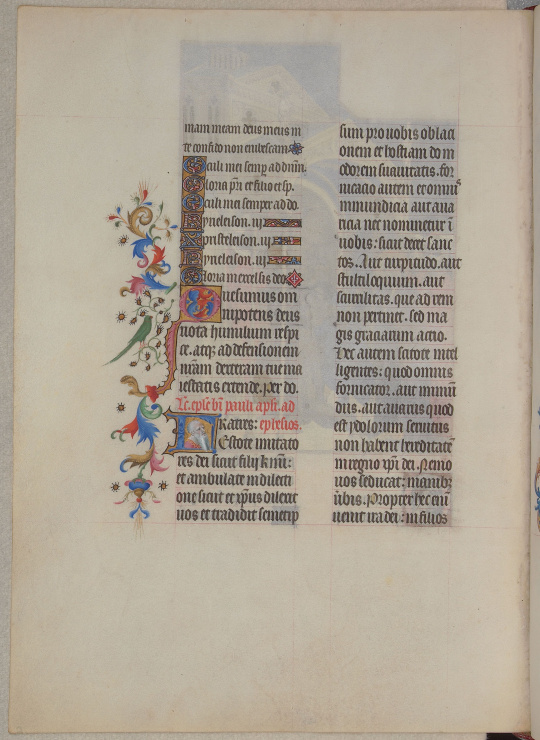 mam meam deus meus in
te confido non erubescam
Oculi mei semper ad dnm.
Gloria pri et filio et sp.
Oculi mei semper ad do.
Kyrieleison. iij
Xpristeleison. iij
Kyrieleison. iij
Gloria in excelsis deo
Quesumus om
nipotens deus
uota humilium respi
ce. atqz ad defensionem
nram dexteram tue ma
iestatis extende. per do.
Lc. eple bi pauli apli. ad
Fratres: ephesios.
Estote imitato
res dei sicut filij kmi:
et ambulate in dilecti
one sicut et xpus dilexit
uos et tradidit semetip
sum pro uobis oblaci
onem et hostiam do in
odorem suauitatis. for
nicacio autem et omnis
inmundicia aut aua
ricia nec nominetur i
uobis: sicut decet sanc
tos. Aut turpitudo. aut
stultiloquium. aut
scurilitas. que ad rem
non pertinet. sed ma
gis graciarum actio.
Hec autem scitote intel
ligentes: quod omnis
fornicator. aut inmun
dus. aut auarus quod
est ydolorum seruitus
non habent hereditate
in regno xpi dei. Nemo
uos seducat: inanibz
uerbis. Propter hec eni
uenit ira dei: in filios